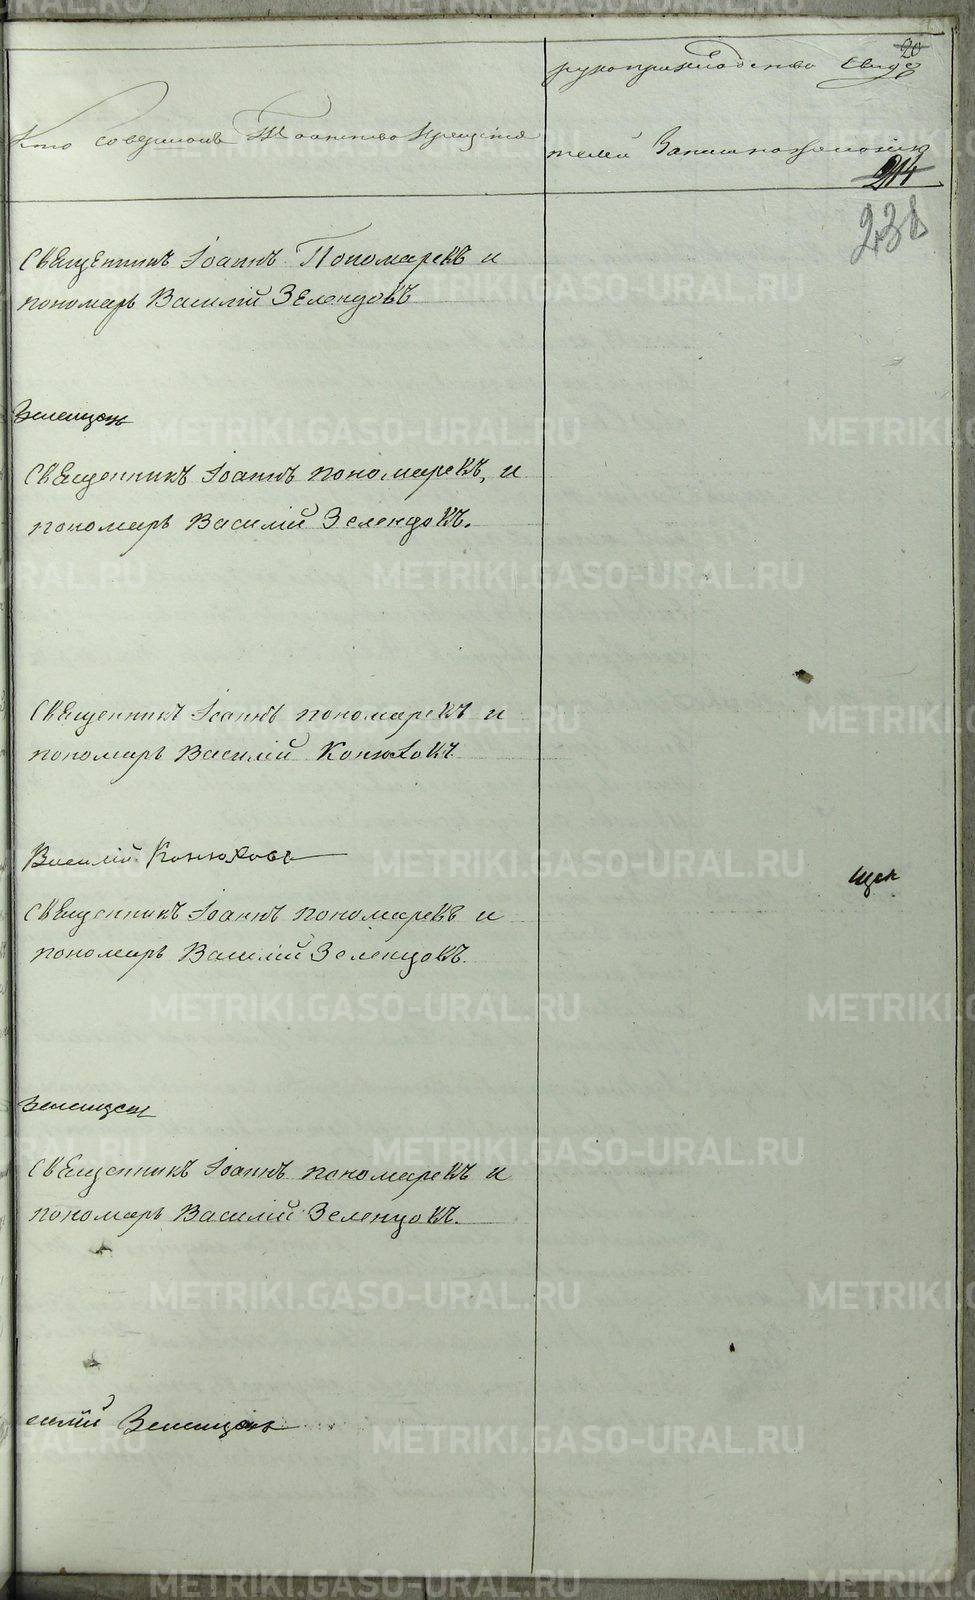 20
рукоприкладство свидѣ
Кто совершалъ Таинство Крещенія
телей записи по желанію
214
238
Священникъ Іоаннъ Пономаревъ и
пономарь Василій Зеленцовъ
Зеленцовъ
Священникъ Іоаннъ Пономаревъ, и
пономарь Василій Зеленцовъ.
Священникъ Іоаннъ Пономаревъ и
пономарь Василій Конюховъ
Василій Конюховъ
щен
Священникъ Іоаннъ Пономаревъ и
пономарь Василій Зеленцовъ.
Зеленцовъ
Священникъ Іоаннъ Пономаревъ и
пономарь Василій Зеленцовъ.
силій Зеленцовъ
METRIKI.GASO-URAL.RU